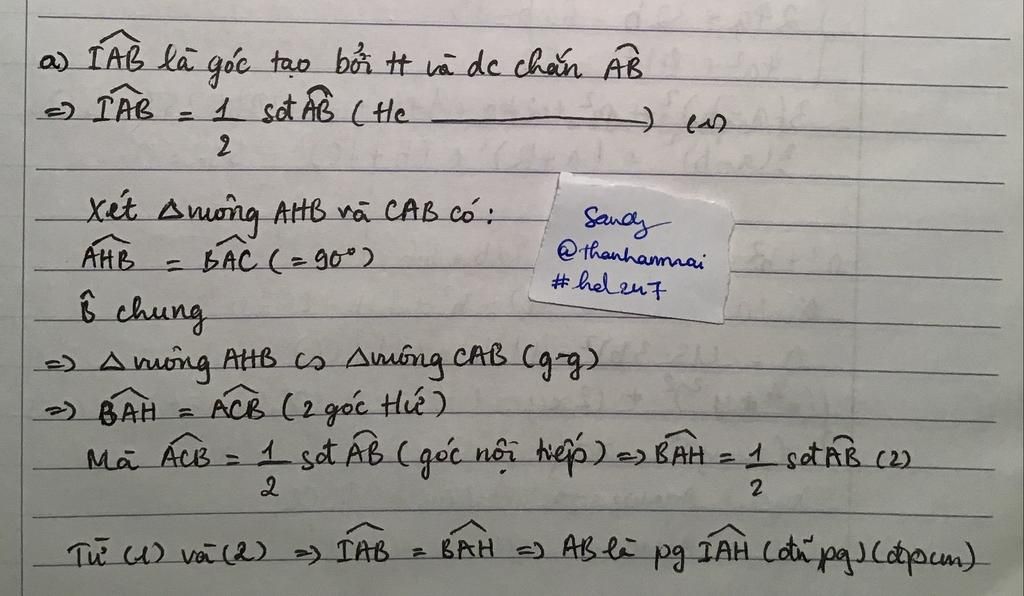 a) IAB là góc tạo bởi tt và dc chắn AB
=> IAB = 1/2 sđ AB (t/c ————) (1)
Xét Δ vuông AHB và CAB có:
AHB = BAC (= 90°)
B chung
=> Δ vuông AHB ∽ Δ vuông CAB (g-g)
=> BAH = ACB (2 góc t/ứ)
Mà ACB = 1/2 sđ AB (góc nội tiếp) => BAH = 1/2 sđ AB (2)
Từ (1) và (2) => IAB = BAH => AB là pg IAH (đ/n pg) (đpcm)
Sandy
@thanhamnai
#hd247